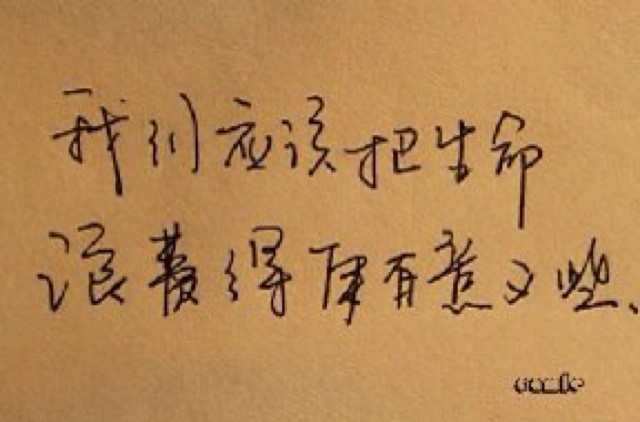 我们应该把生命
浪费得更有意义些、